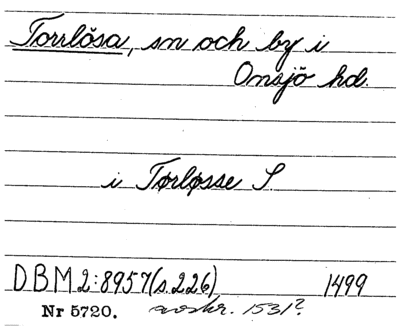 Torrlösa, sn och by i
Onsjö hd.
i Tørløsse S
DBM 2:8957 (s. 226) 1499
Nr 5720. avskr. 1531?